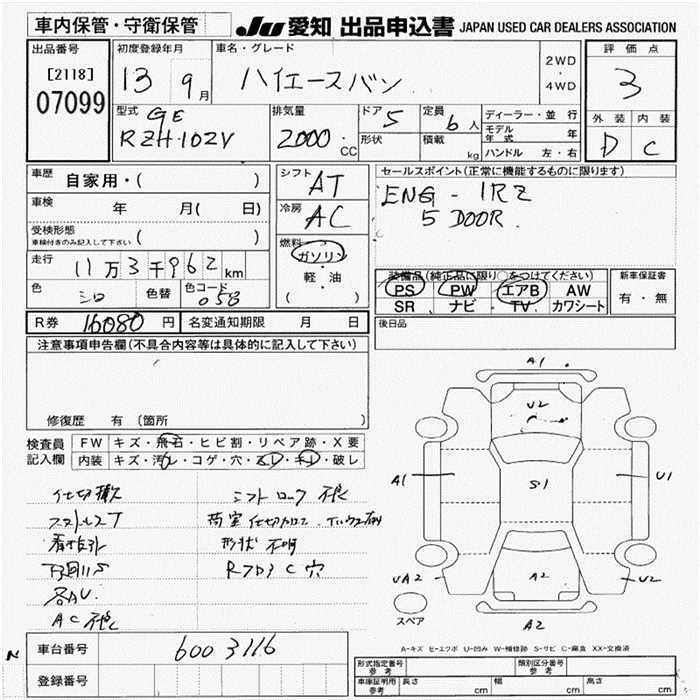 車内保管・守衛保管
JU 愛知 出品申込書 JAPAN USED CAR DEALERS ASSOCIATION
出品番号
[2118]
07099
初度登録年月
13 9月
車名・グレード
ハイエースバン
2WD
・
4WD
評価点
3
外装 内装
D C
型式
GE
RZH-102V
排気量
2000 CC
ドア 5
形状
定員 6人
積載 kg
ディーラー・並行
モデル年式 年
ハンドル 左・右
車歴
自家用・( )
車検 年 月( 日)
受検形態
車検付きのみ記入して下さい ( )
走行
11万3千962km
色 シロ 色替 色コード 058
シフト
AT
冷房
AC
燃料
ガソリン
・
軽・油
( )
セールスポイント(正常に機能するものに限ります)
ENG - 1RZ
5 DOOR
装備品(純正品に限り○をつけてください)
PS PW エアB AW
SR ナビ TV カワシート
新車保証書
有・無
後日品
R券 16080円 名変通知期限 月 日
注意事項申告欄(不具合内容等は具体的に記入して下さい)
修復歴 有 〔箇所 〕
検査員記入欄
FW キズ・飛石・ヒビ割・リペア跡・X要
内装 キズ・汚れ・コゲ・穴・スレ・キレ・破レ
シフトロック
形状 不明
各AU
穴
AC
A1
U2
A1
S1
U1
UA2
A2
U2
スペア
A2
A-キズ E-エクボ U-凹み W-補修跡 S-サビ C-腐食 XX-交換済
N
車台番号 600 3116
登録番号
形式指定番号
参考
類別区分番号
参考
車庫証明用
参考
長さ cm 幅 cm 高さ cm